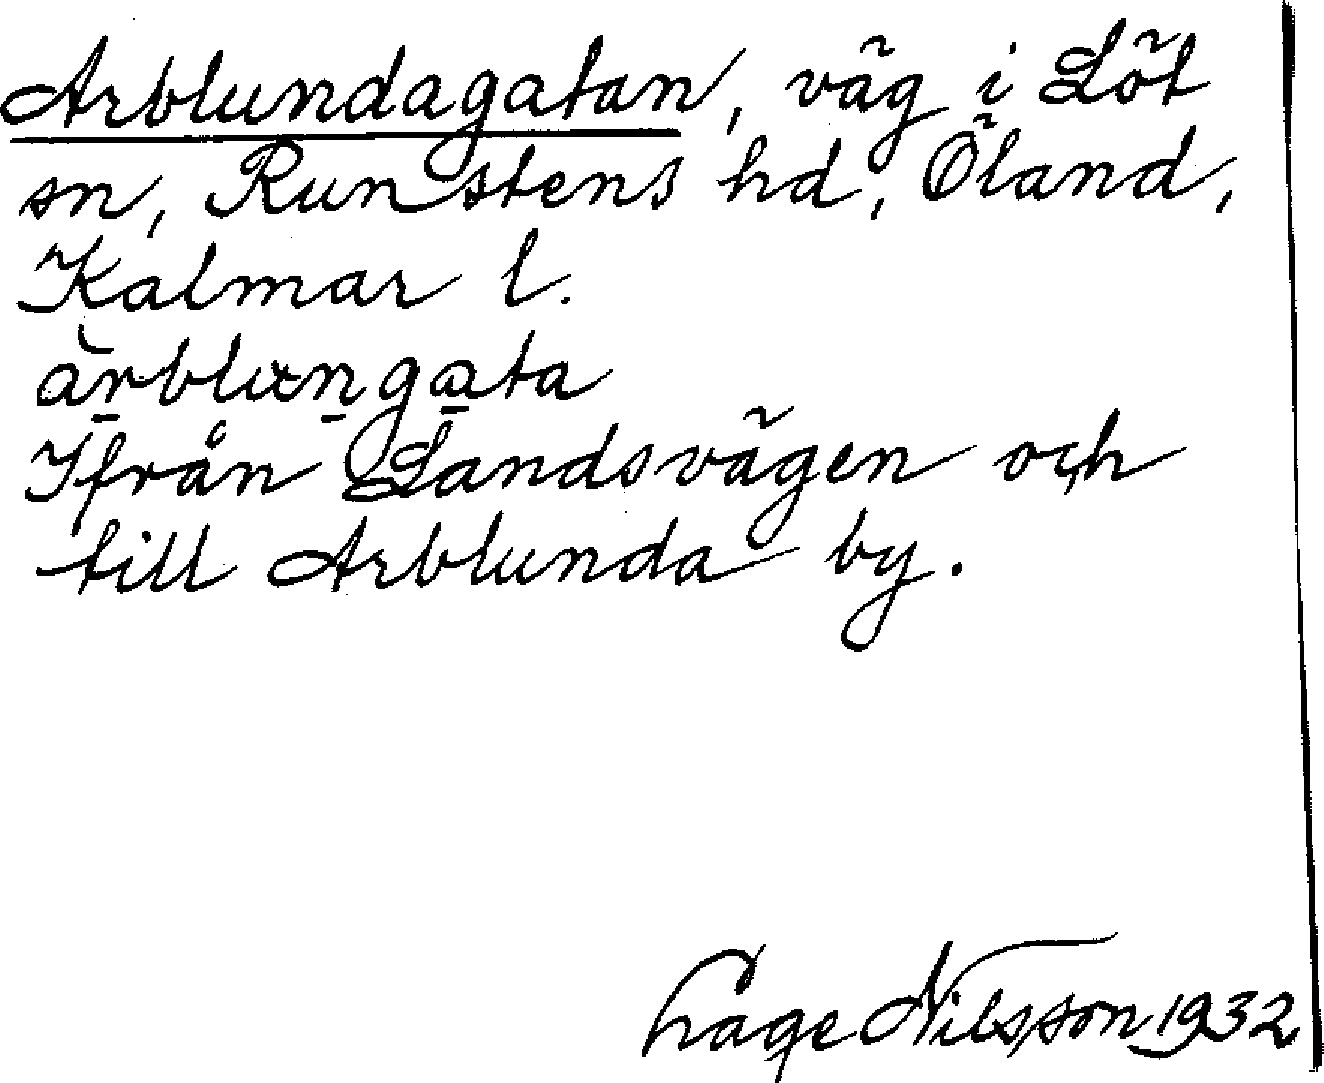 Arblundagatan, väg i Löt
sn, Runstens hd, Öland,
Kalmar l.
àrblungata
Ifrån Landsvägen och
till Arblunda by.
Lage Nilsson 1932